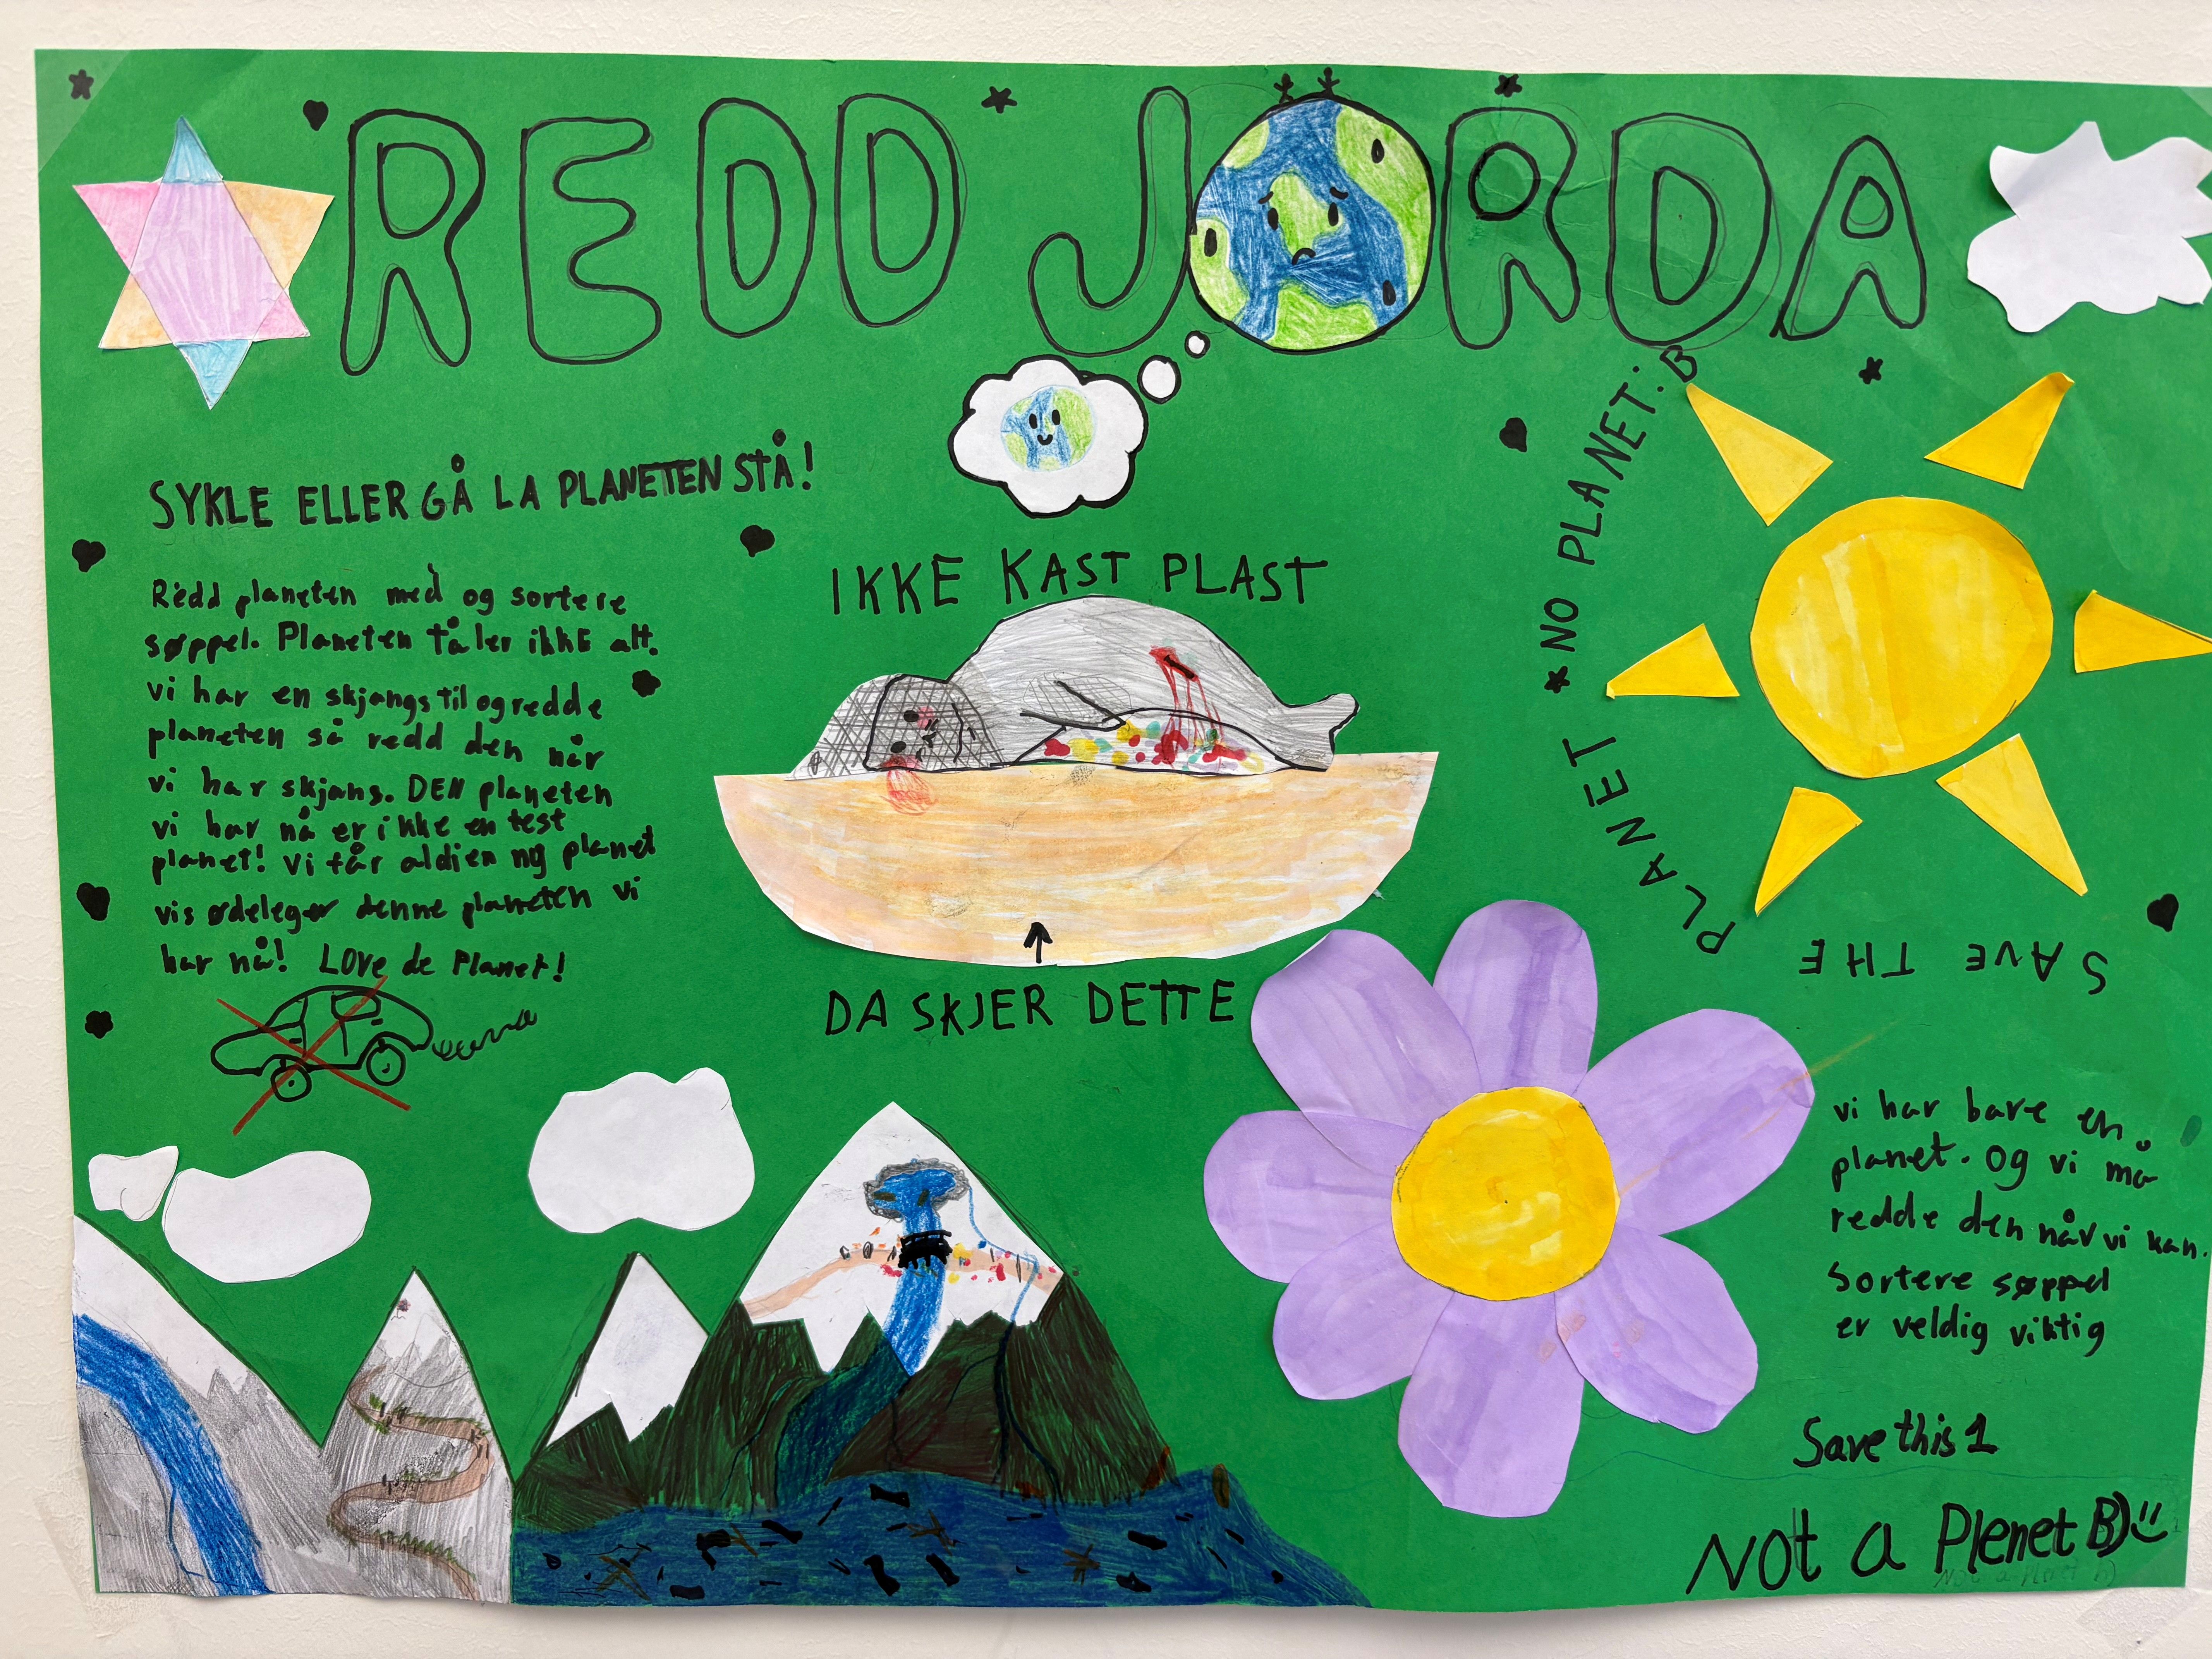 REDD JORDA
SYKLE ELLER GÅ LA PLANETEN STÅ!
Redd planeten med og sortere
søppel. Planeten tåler ikke alt.
vi har en skjangs til og redde
planeten så redd den når
vi har skjans. DEN planeten
vi har nå er ikke en test
planet! Vi får aldien ny planet
vis ødeleger denne planeten vi
har nå! Love de Planet!
IKKE KAST PLAST
DA SKJER DETTE
SAVE THE PLANET * NO PLANET: B
vi har bare en
planet. Og vi må
redde den når vi kan.
Sortere søppel
er veldig viktig
Save this 1
Not a Plenet B)